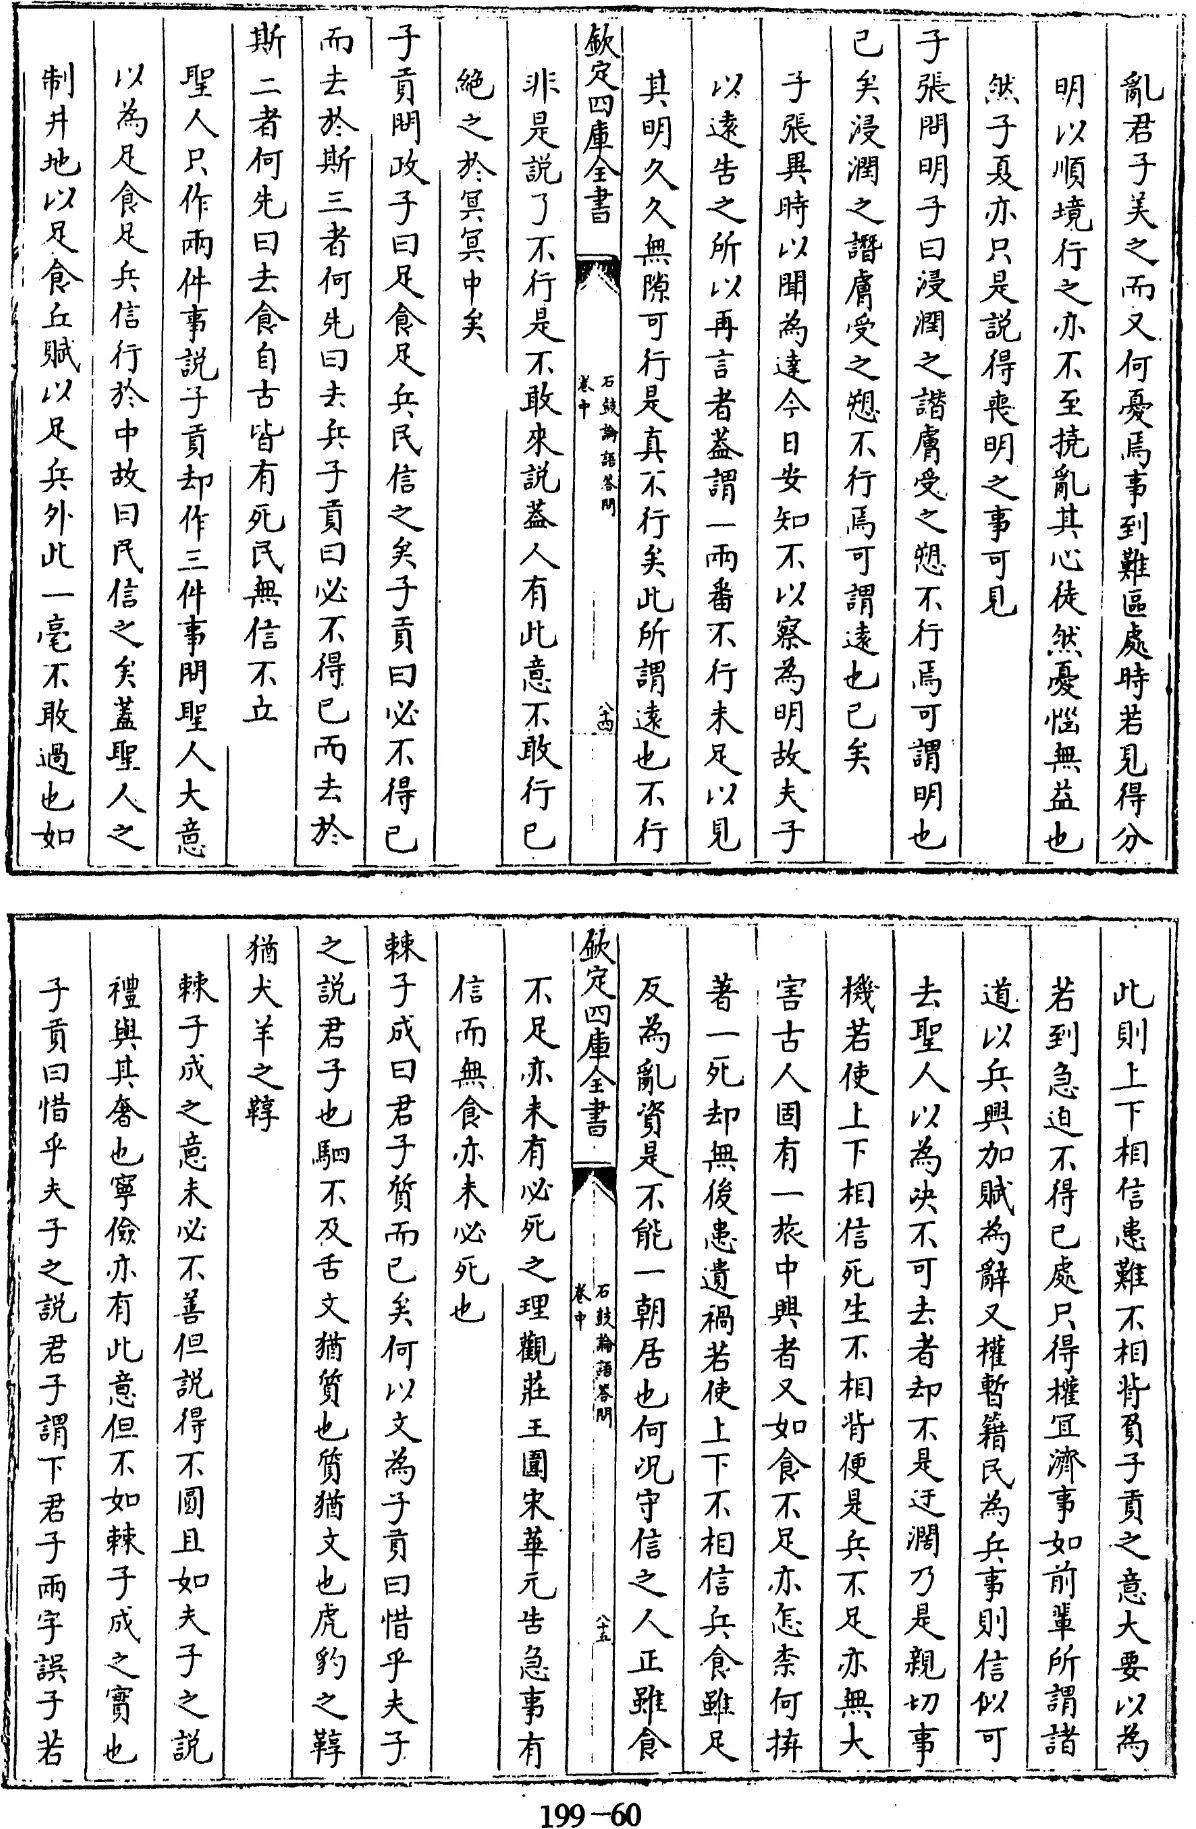 亂君子美之而又何憂焉事到難區處時若見得分
明以順境行之亦不至撓亂其心徒然憂惱無益也
然子夏亦只是説得喪明之事可見
子張問明子曰浸潤之譖膚受之愬不行焉可謂明也
已矣浸潤之譖膚受之愬不行焉可謂遠也已矣
子張異時以聞為達今日安知不以察為明故夫子
以遠告之所以再言者葢謂一兩番不行未足以見
其明久久無隙可行是真不行矣此所謂遠也不行
欽定四庫全書
石鼓論語答問
卷中
八十四
非是説了不行是不敢來説葢人有此意不敢行已
絶之於冥冥中矣
子貢問政子曰足食足兵民信之矣子貢曰必不得已
而去於斯三者何先曰去兵子貢曰必不得已而去於
斯二者何先曰去食自古皆有死民無信不立
聖人只作兩件事説子貢却作三件事問聖人大意
以為足食足兵信行於中故曰民信之矣蓋聖人之
制井地以足食丘賦以足兵外此一毫不敢過也如
此則上下相信患難不相背負子貢之意大要以為
若到急迫不得已處只得權宜濟事如前輩所謂諸
道以兵興加賦為辭又權暫籍民為兵事則信似可
去聖人以為決不可去者却不是迂濶乃是親切事
機若使上下相信死生不相背便是兵不足亦無大
害古人固有一旅中興者又如食不足亦怎柰何拚
著一死却無後患遺禍若使上下不相信兵食雖足
反為亂資是不能一朝居也何况守信之人正雖食
欽定四庫全書
石鼓論語答問
卷中
八十五
不足亦未有必死之理觀莊王圍宋華元告急事有
信而無食亦未必死也
棘子成曰君子質而已矣何以文為子貢曰惜乎夫子
之説君子也駟不及舌文猶質也質猶文也虎豹之鞟
猶犬羊之鞟
棘子成之意未必不善但説得不圓且如夫子之説
禮與其奢也寧儉亦有此意但不如棘子成之實也
子貢曰惜乎夫子之説君子謂下君子兩字誤子若
199-60